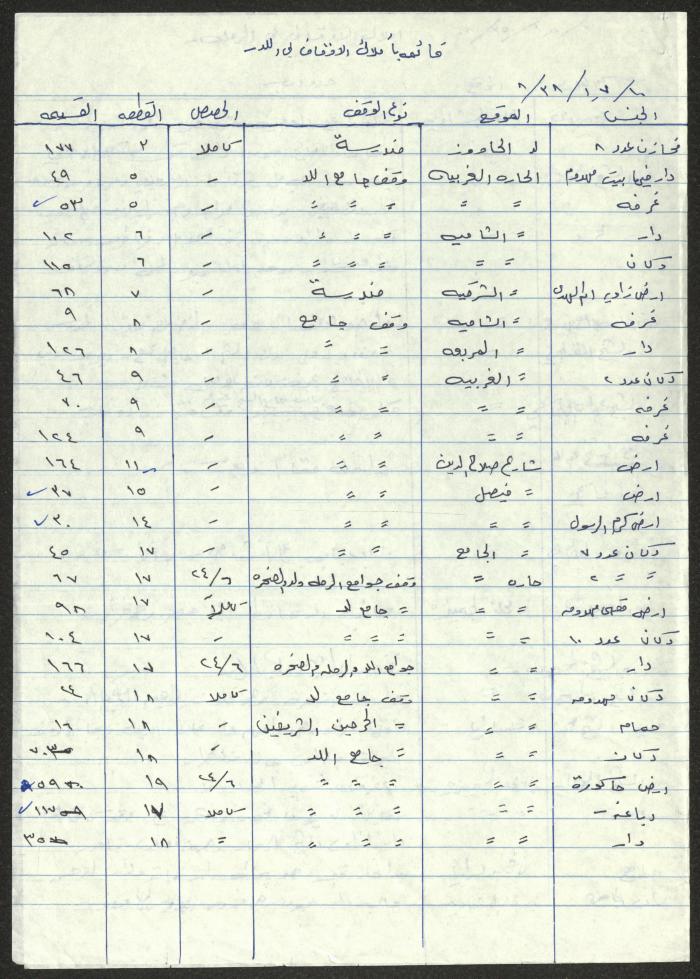 قائمه باملاك الاوقاف في اللد
الجنس الموقع نوع الوقف الحصص القطعه القسيمه
مخازن عدد ٨ لد مندرسة كاملا ٢ ١٧٧
دار فيها بيت مهدوم الحاره الغربيه وقف جامع اللد – ٥ ٤٩
غرفه = = = = = – ٥ ٥٣ ✓
دار = الشاميه = = = – ٦ ١٠٢
دكان = = = = = – ٦ ١١٥
ارض = الشرقيه مندرسة – ٧ ٦٨
غرفه = الشاميه وقف جامع – ٨ ٩
دار = = = – ٨ ١٢٦
دكان عدد ٢ = الغربيه = = – ٩ ٤٦
غرفه = = = = – ٩ ٧٠
غرفه = = = = – ٩ ١٢٤
ارض شارع صلاح الدين = = – ١١ ١٦٤
ارض = فيصل = = – ١٥ ٣٧ ✓
ارض كرم الرسول = = = = – ١٤ ٣٠ ✓
دكان عدد ٧ = الجامع = = – ١٧ ٤٥
= = ٢ حاره = وقف جوامع الرمله ولد والصخره ٢٤/٦ ١٧ ٦٧
ارض مهدومه = = = جامع لد كاملاً ١٧ ٩٨
دكان عدد ١٠ = = = = = – ١٧ ١٠٤
دار = = جوامع اللد والرمله والصخره ٢٤/٦ ١٧ ١٦٦
دكان مهدومه = = وقف جامع لد كاملا ١٨ ٢٤
حمامه = = = الحرمين الشريفين – ١٨ ١٦
دكان = = = جامع اللد – ١٨
ارض حاكورة = = = = = ٢٤/٦ ١٩ ٥٩
= = = = = كاملا ١٧
دار = = = = = = ١٨